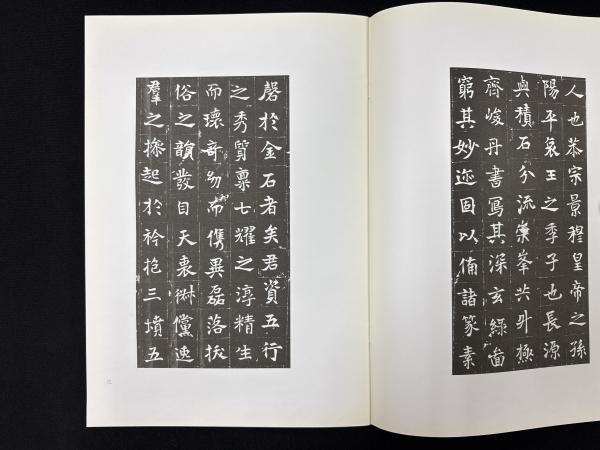 人也恭宗景穆皇帝之孫
陽平哀王之季子也長源
與積石分流崇峯共斗極
齊峻丹書寫其深玄綠圖
窮其妙迹固以備諸篆素
磬於金石者矣君資五行
之秀質稟七耀之淳精生
而瓌奇幼而儁異磊落拔
俗之韻發自天衷倜儻逸
羣之操起於衿抱三墳五